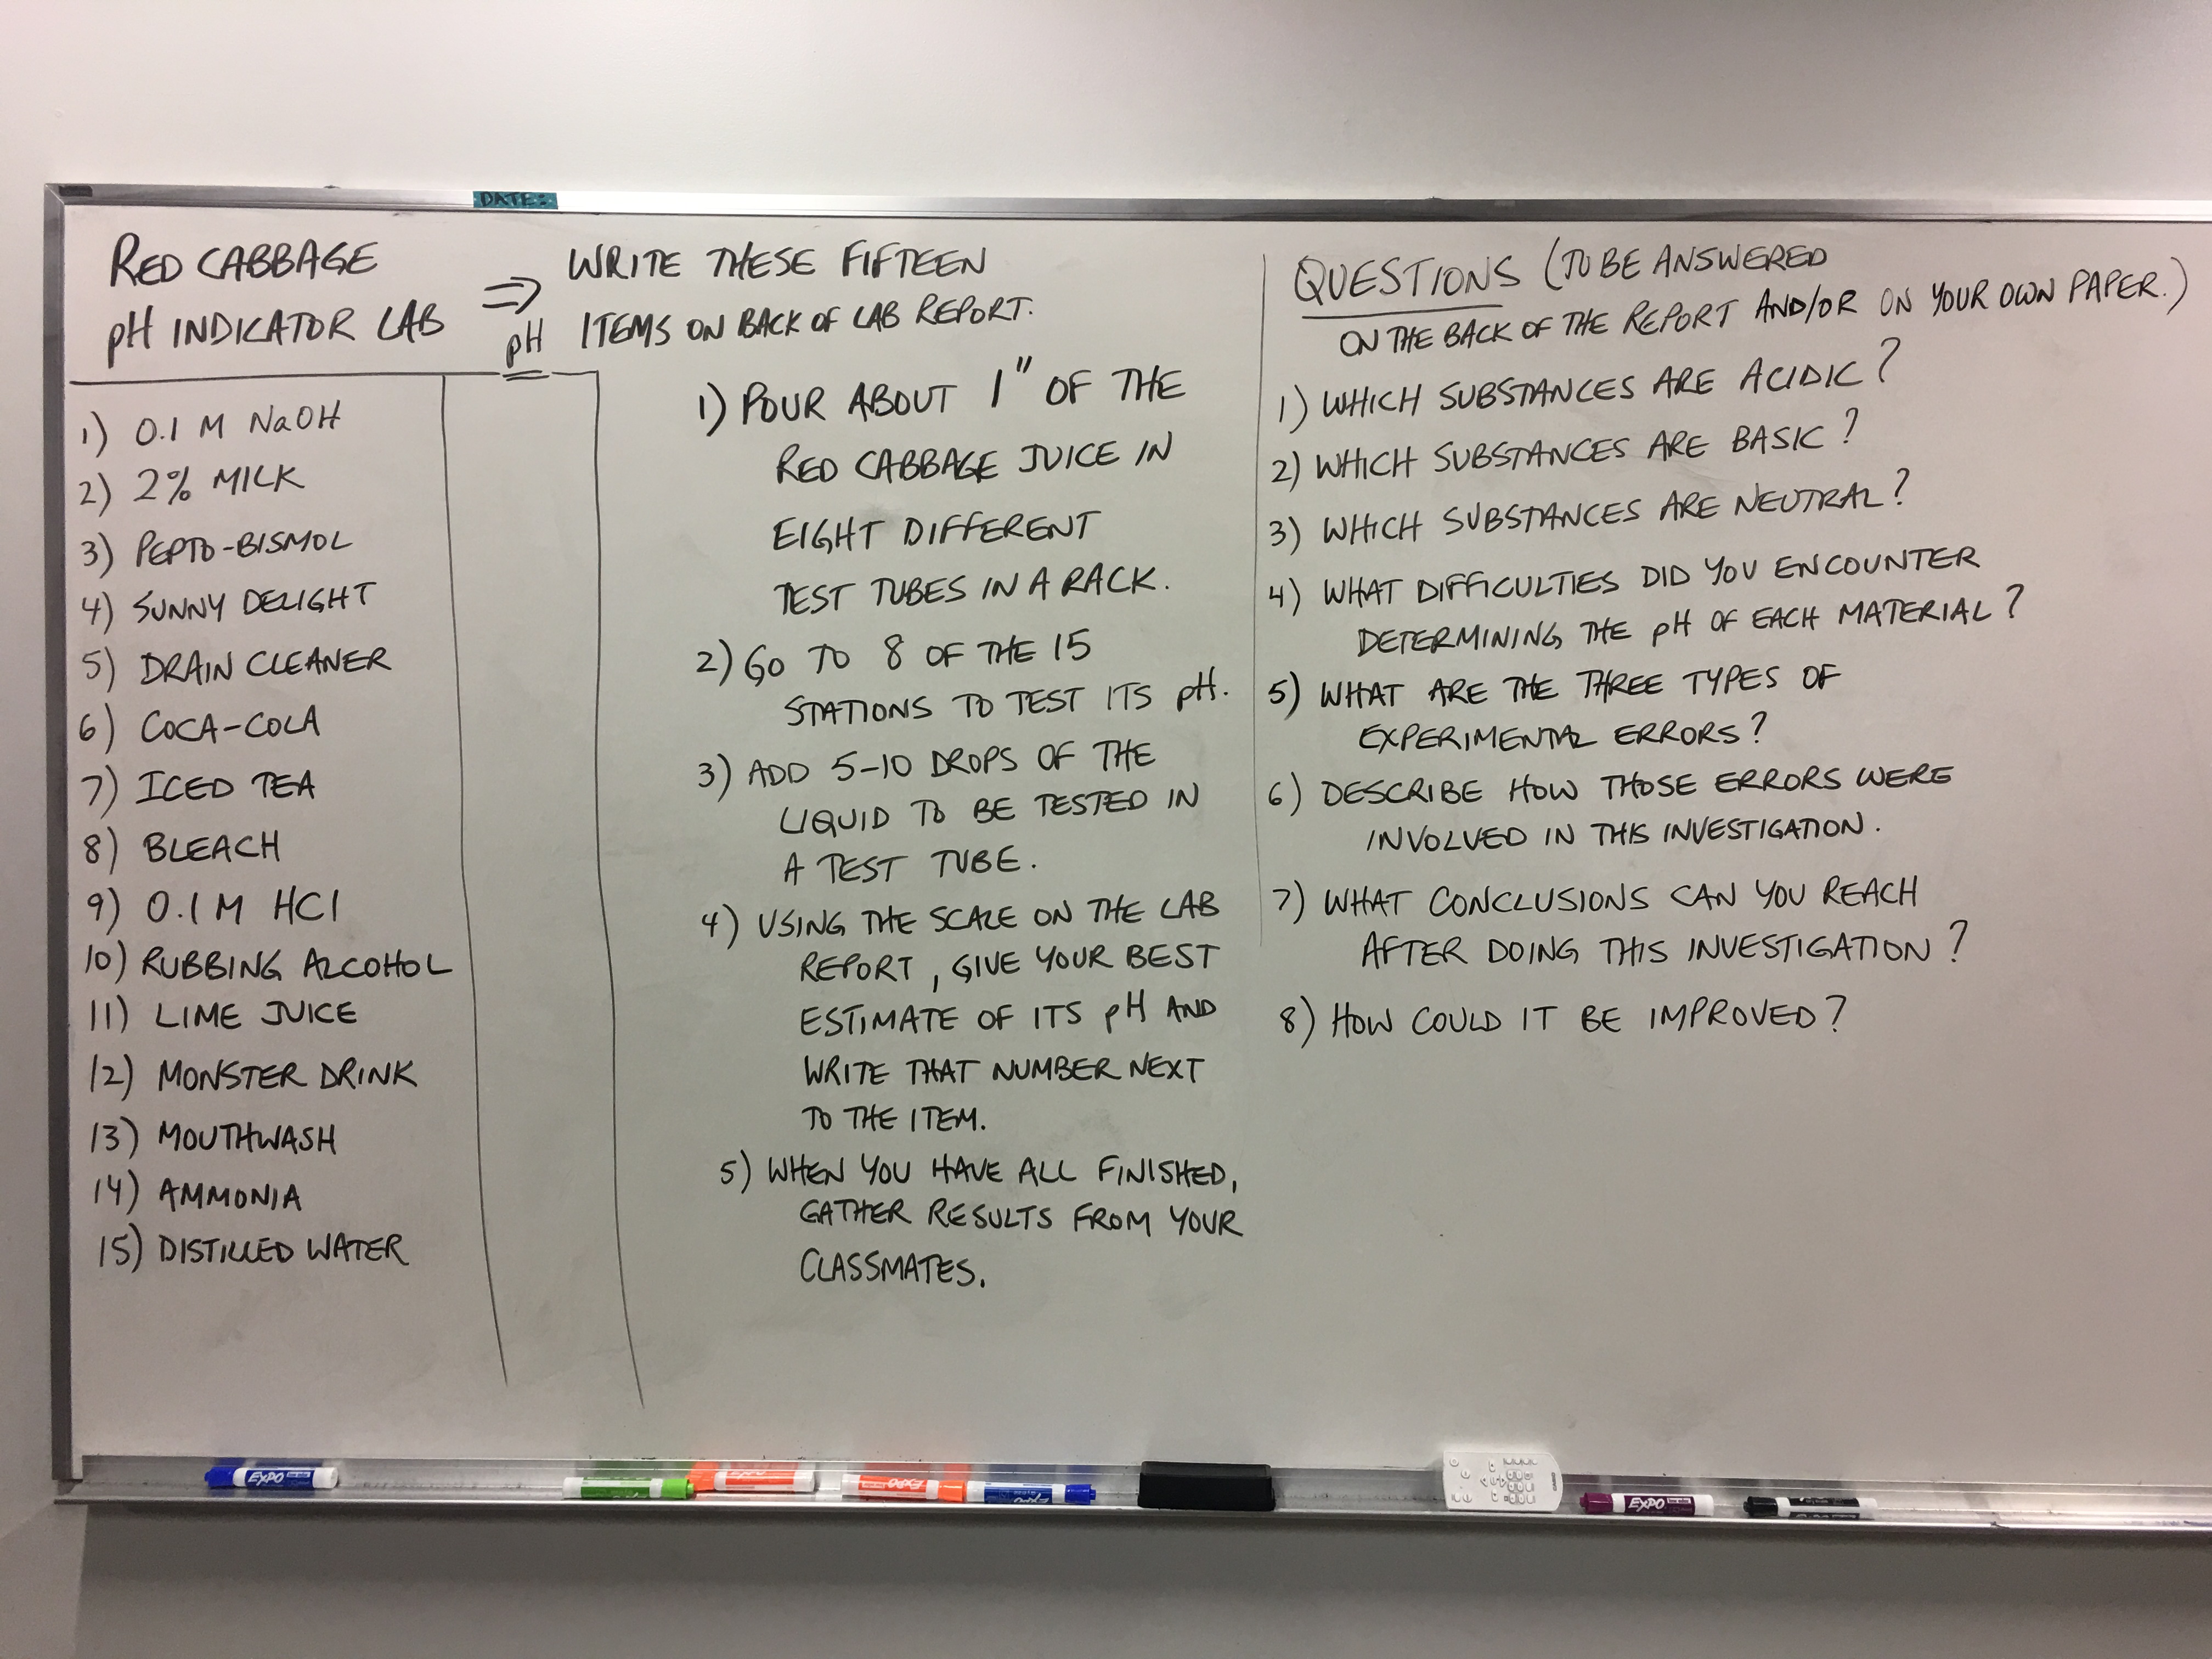 DATE:
RED CABBAGE
pH INDICATOR LAB
⇒ WRITE THESE FIFTEEN
ITEMS ON BACK OF LAB REPORT.
pH
1) 0.1 M NaOH
2) 2% MILK
3) PEPTO-BISMOL
4) SUNNY DELIGHT
5) DRAIN CLEANER
6) COCA-COLA
7) ICED TEA
8) BLEACH
9) 0.1 M HCl
10) RUBBING ALCOHOL
11) LIME JUICE
12) MONSTER DRINK
13) MOUTHWASH
14) AMMONIA
15) DISTILLED WATER
1) POUR ABOUT 1" OF THE
RED CABBAGE JUICE IN
EIGHT DIFFERENT
TEST TUBES IN A RACK.
2) GO TO 8 OF THE 15
STATIONS TO TEST ITS pH.
3) ADD 5-10 DROPS OF THE
LIQUID TO BE TESTED IN
A TEST TUBE.
4) USING THE SCALE ON THE LAB
REPORT, GIVE YOUR BEST
ESTIMATE OF ITS pH AND
WRITE THAT NUMBER NEXT
TO THE ITEM.
5) WHEN YOU HAVE ALL FINISHED,
GATHER RESULTS FROM YOUR
CLASSMATES.
QUESTIONS (TO BE ANSWERED
ON THE BACK OF THE REPORT AND/OR ON YOUR OWN PAPER.)
1) WHICH SUBSTANCES ARE ACIDIC?
2) WHICH SUBSTANCES ARE BASIC?
3) WHICH SUBSTANCES ARE NEUTRAL?
4) WHAT DIFFICULTIES DID YOU ENCOUNTER
DETERMINING THE pH OF EACH MATERIAL?
5) WHAT ARE THE THREE TYPES OF
EXPERIMENTAL ERRORS?
6) DESCRIBE HOW THOSE ERRORS WERE
INVOLVED IN THIS INVESTIGATION.
7) WHAT CONCLUSIONS CAN YOU REACH
AFTER DOING THIS INVESTIGATION?
8) HOW COULD IT BE IMPROVED?
EXPO
EXPO
EXPO
EXPO
EXPO